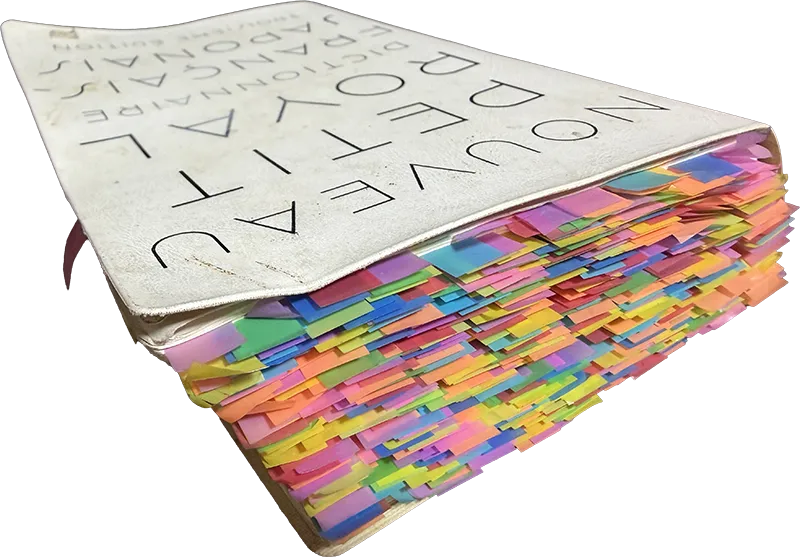 NOUVEAU
PETIT
ROYAL
DICTIONNAIRE
FRANÇAIS-
JAPONAIS
TROISIÈME ÉDITION